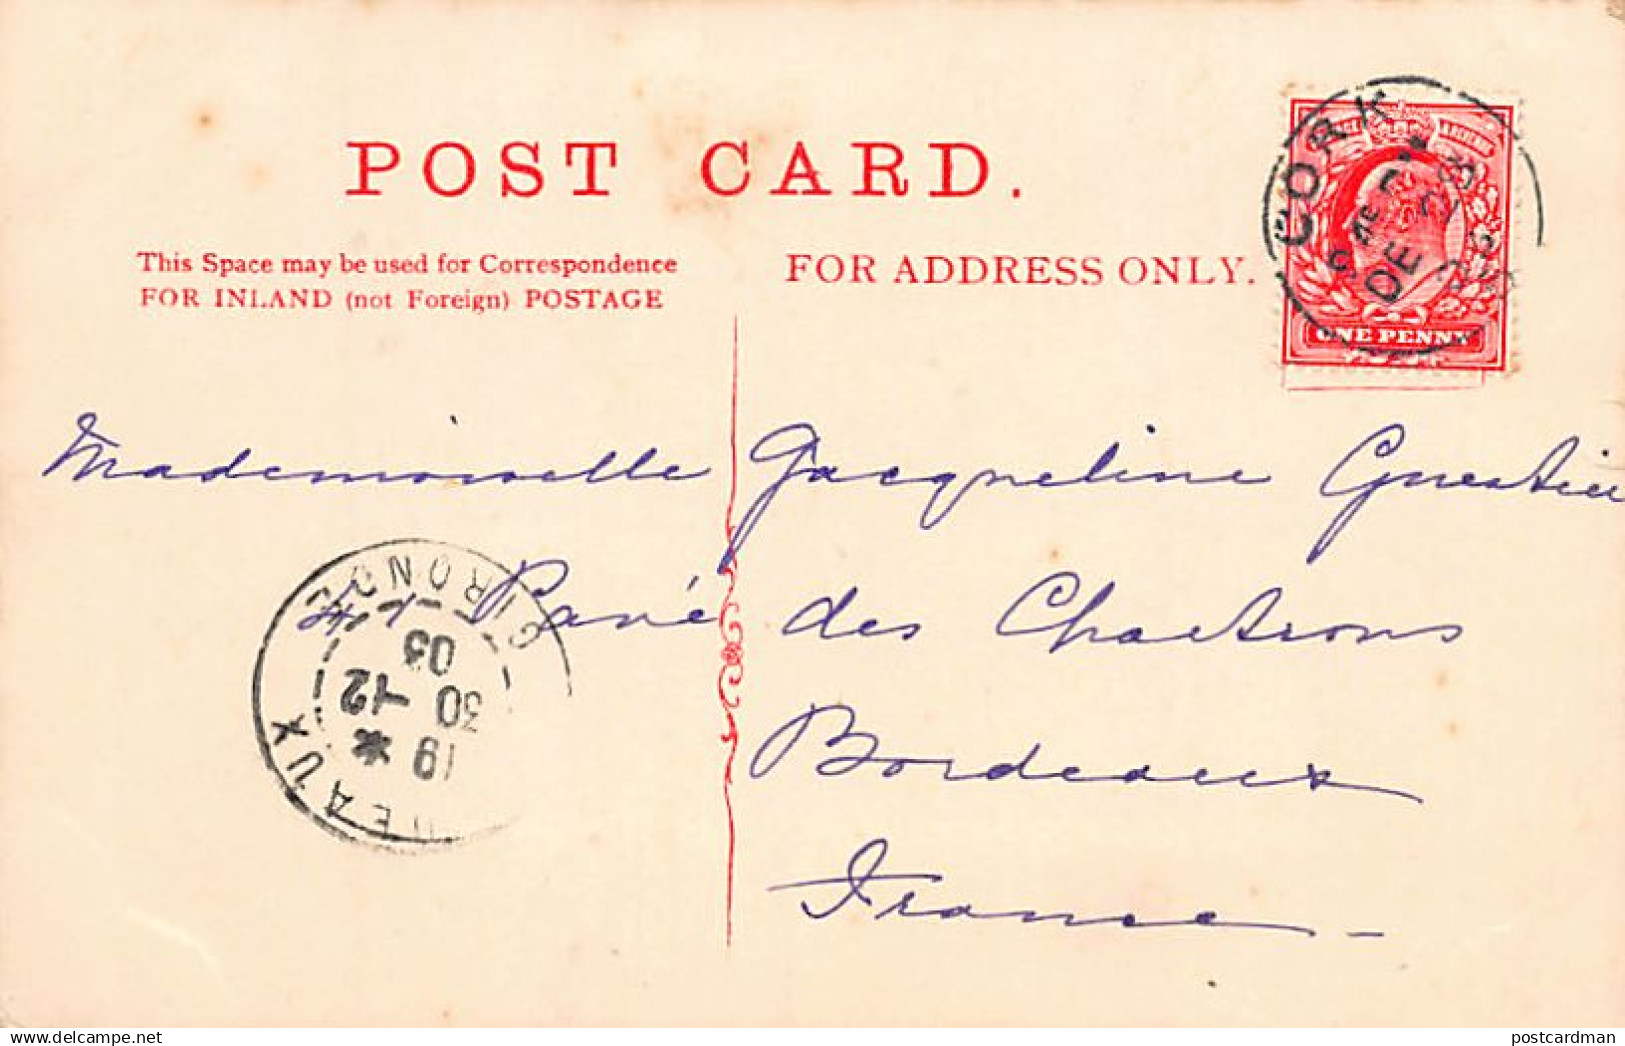 POST CARD.
This Space may be used for Correspondence
FOR INLAND (not Foreign) POSTAGE
FOR ADDRESS ONLY.
CORK
DE 28
ONE PENNY
Mademoiselle Jacqueline Guestier
41 Pavé des Chartrons
Bordeaux
France
GIRONDE
19 *
30 -12
05
EAUX
postcardman
www.delcampe.net